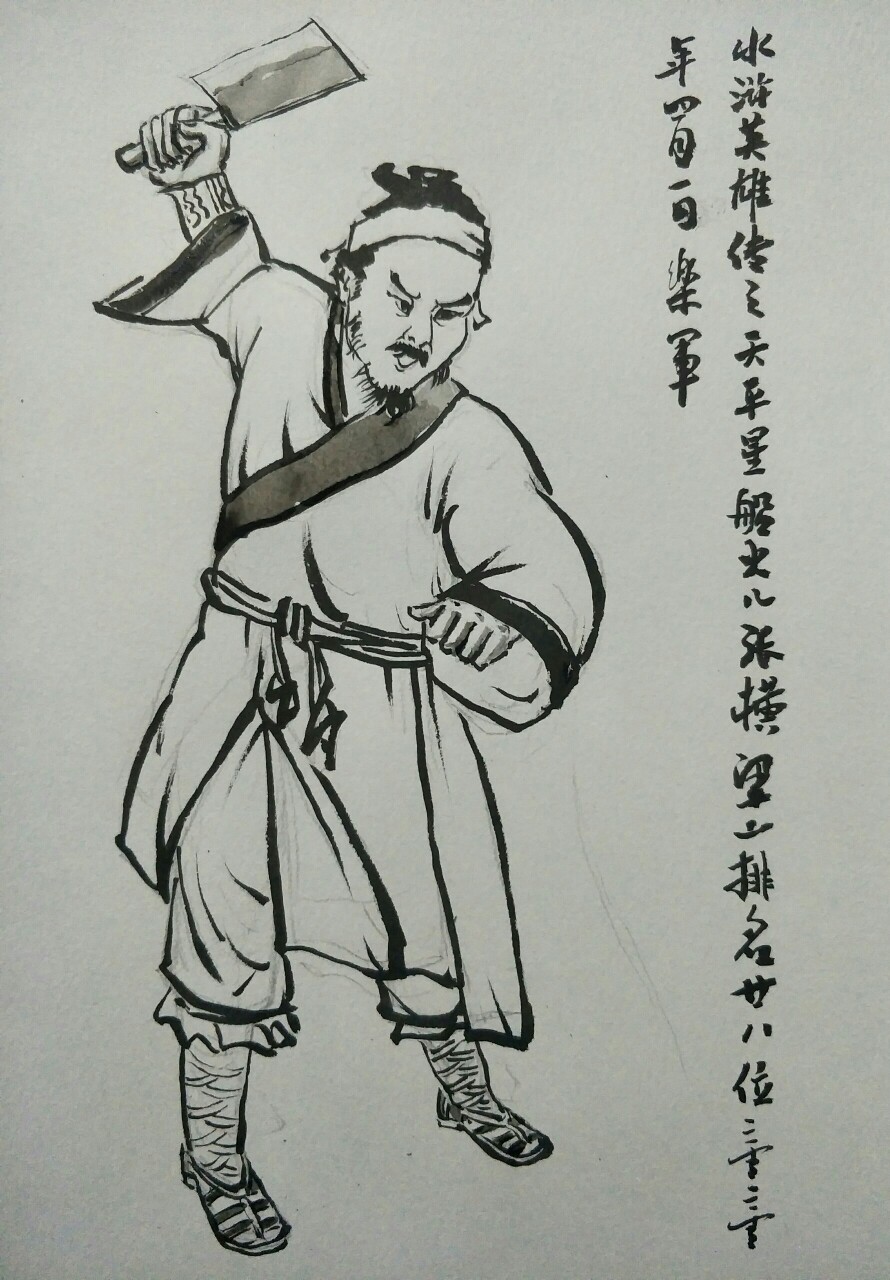 水浒英雄传之天平星船火儿张横梁山排名廿八位二零二零
年四月一日 樂軍